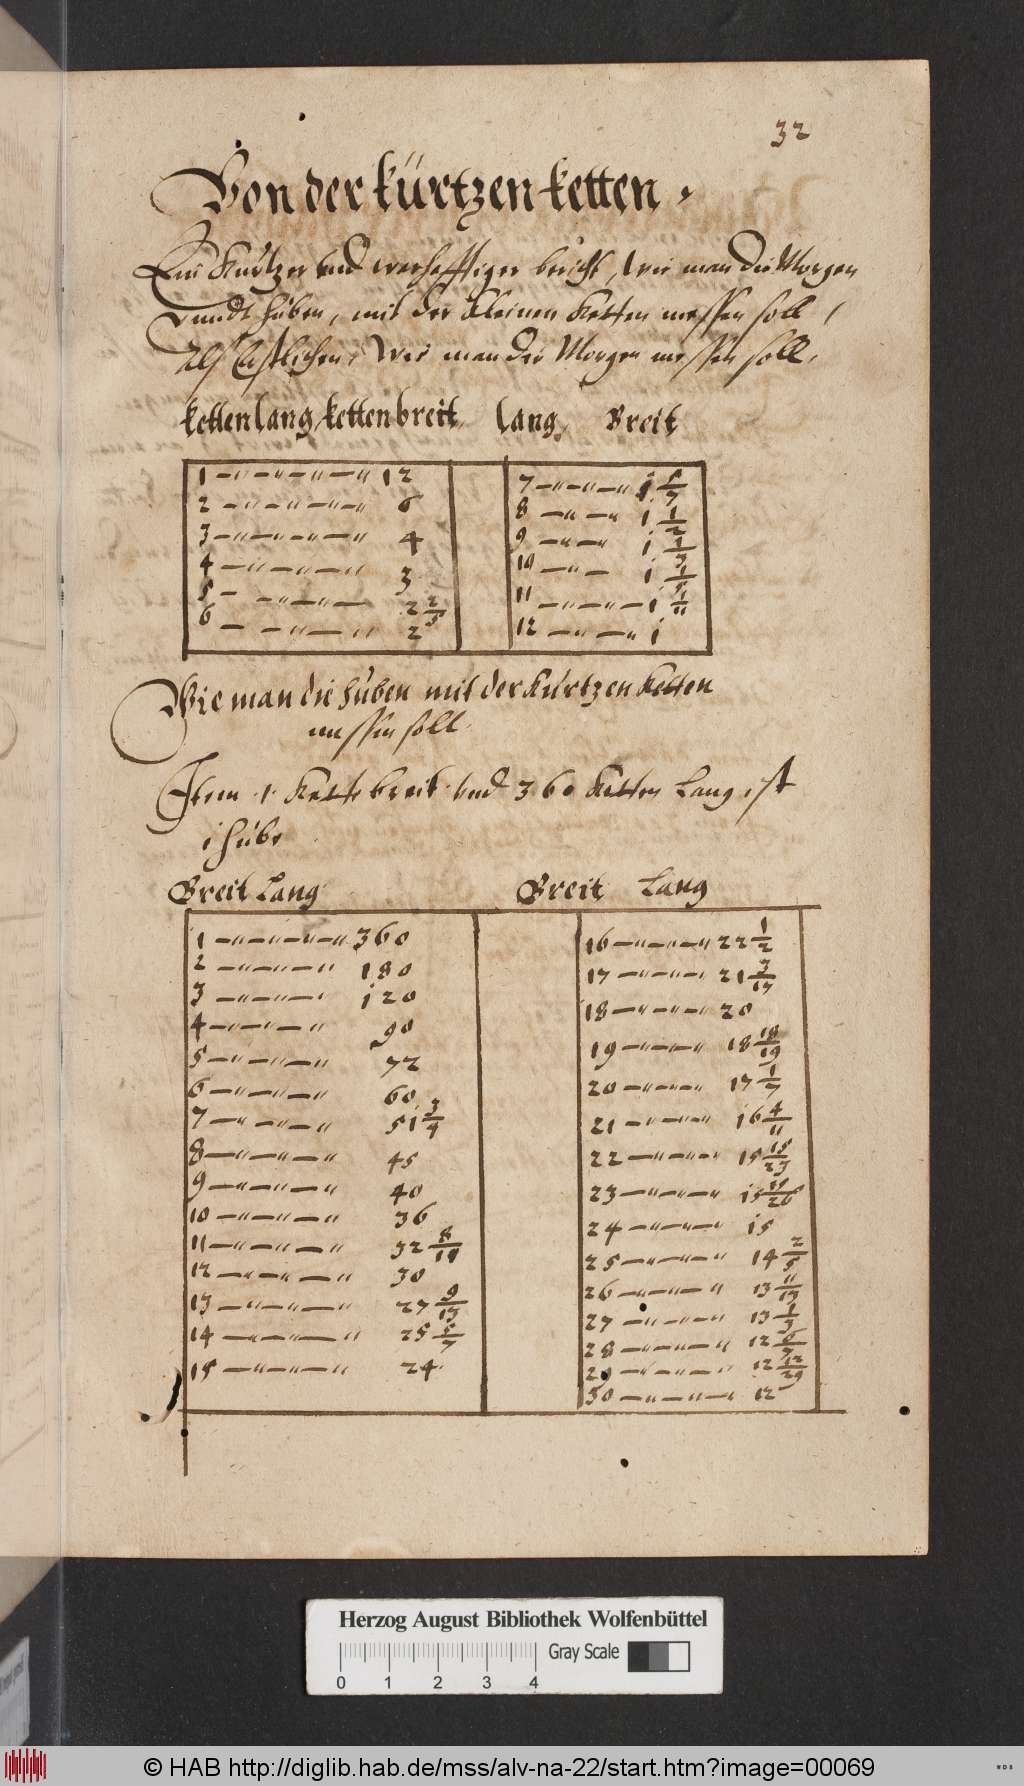 32
Von der kürtzen ketten.
Ein Kürtzer und warhafftiger bericht, wie man die Morgen
unndt hüben, mit der kleinen Ketten messen soll,
Alß Erstlichen, Wie man die Morgen messen soll.
ketten lang, ketten breit, lang, Breit
1 — " — " — " — " 12
2 — " — " — " — " 6
3 — " — " — " — " 4
4 — " — " — " — " 3
5 — — " — " — 2 2/5
6 — — " — " 2
7 — " — " — " i 5/7
8 — " — " i 1/2
9 — " — " i 1/3
10 — " — i 1/5
11 — " — " — i 1/11
12 — " — " i
Wie man die hüben mit der Kürtzen Ketten
messen soll.
Item 1 Kette breit und 360 Ketten Lang ist
i hübe
Breit Lang
1 — " — " — " — " 360
2 — " — " — " 180
3 — " — " — " i20
4 — " — " — " 90
5 — " — " — " 72
6 — " — " — " 60
7 — " — " — " 51 3/4
8 — " — " — " 45
9 — " — " — " 40
10 — " — " — " 36
11 — " — " — " 32 8/11
12 — " — " — " 30
13 — " — " — " 27 9/13
14 — " — " — " 25 5/7
15 — " — " — " 24
Breit Lang
16 — " — " — " 22 1/2
17 — " — " — " 21 3/17
18 — " — " — " 20
19 — " — " — " 18 18/19
20 — " — " — " 17 1/7
21 — " — " — " i6 4/11
22 — " — " — " 15 15/23
23 — " — " — " i5
24 — " — " — " i5
25 — " — " — " 14 2/5
26 — " — " — " 13 11/13
27 — " — " — " 13 1/3
28 — " — " — " 12 6/7
29 — " — " — " 12 12/29
30 — " — " — " 12
Herzog August Bibliothek Wolfenbüttel
Gray Scale
0 1 2 3 4
© HAB http://diglib.hab.de/mss/alv-na-22/start.htm?image=00069